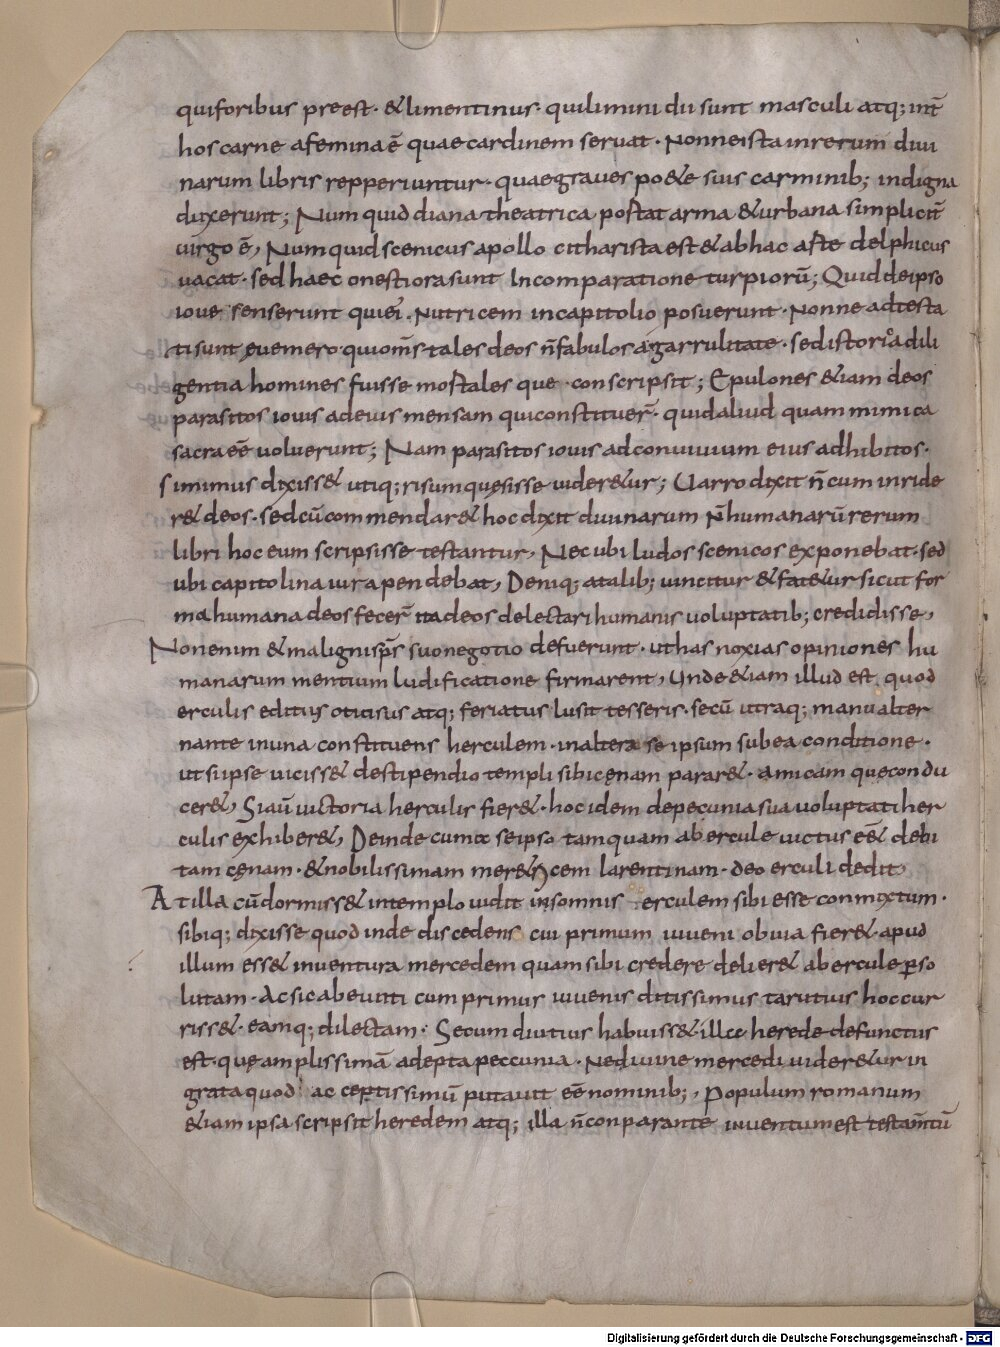 quiforibus preest · &limentinus · quilimini dii sunt masculi atq; int̄
hoscarne afemina ē quae cardinem seruat · Nonneista inrerum diui
narum libris repperiuntur · quaegraues po&e suis carminib; indigna
duxerunt; Num quid diana theatrica portat arma &urbana simplicit̄
uirgo ē, Num quid scenicus apollo citharista est &abhac arte delphicus
uacat · sed haec onestiora sunt Incomparatione turpiorū; Quid deipso
ioue senserunt qui eī · Nutricem incapitolio posuerunt · Nonne adtesta
ti sunt euemero · quiom̄s tales deos n̄ fabulosa garrulitate · sedistoria dili
gentia homines fuisse mortales que · conscripsit; Epulones &iam deos
parasitos iouis adeius mensam quiconstituer̄ · quidaliud quam mimica
sacra eē uoluerunt; Nam parasitos iouis adconuiuium eius adhibitos ·
simimus dixiss& utiq; risumquęsisse uider&ur; Uarro dixit n̄ cum inride
r& deos · sed cū commendar& hoc dixit diuinarum n̄ humanarū rerum
libri hoc eum scripsisse testantur, Nec ubi ludos scenicos exponebat · sed
ubi capitolina iura pendebat, Deniq; atalib; uincitur &fat&ur sicut for
ma humana deos fecer̄ ita deos delectari humanis uoluptatib; credidisse,
Nonenim &maligni sp̄s suo negotio defuerunt · ut has noxias opiniones hu
manarum mentium ludificatione firmarent, Unde &iam illud est quod
erculis edituus oticisus atq; feriatus lusit tesseris · secū utraq; manu alter
nante inuna constituens herculem · inaltera se ipsum sub ea conditione ·
ut siipse uiciss& destipendio templi sibi cęnam parar& · amicam que condu
cer&, Si aū uictoria herculis fier& · hoc idem depecunia sua uoluptati her
culis exhiber&, Deinde cum a seipso tamquam ab ercule uictus eē& debi
tam cęnam · &nobilissimam mer&ricem larentinam · deo erculi dedit,
At illa cū dormiss& intemplo uidit insomnis erculem sibi esse conmixtum ·
sibiq; dixisse quod inde discedens cui primum iuueni obuia fier& · apud
illum ess& inuentura mercedem quam sibi credere deber& ab ercule p̱so
lutam · Ac sic abeunti cum primus iuuenis ditissimus tarutius hoccur
riss& · eamq; dilectam · Secum diutius habuiss& illa herede defunctus
est · quę amplissimā adepta peccunia · Ne diuine mercedi uider&ur in
grata quod ac ceptissimū putauit eē nominib; , Populum romanum
&iam ipsa scripsit heredem atq; illa n̄ conparante inuentum est testam̄tū
Digitalisierung gefördert durch die Deutsche Forschungsgemeinschaft - DFG